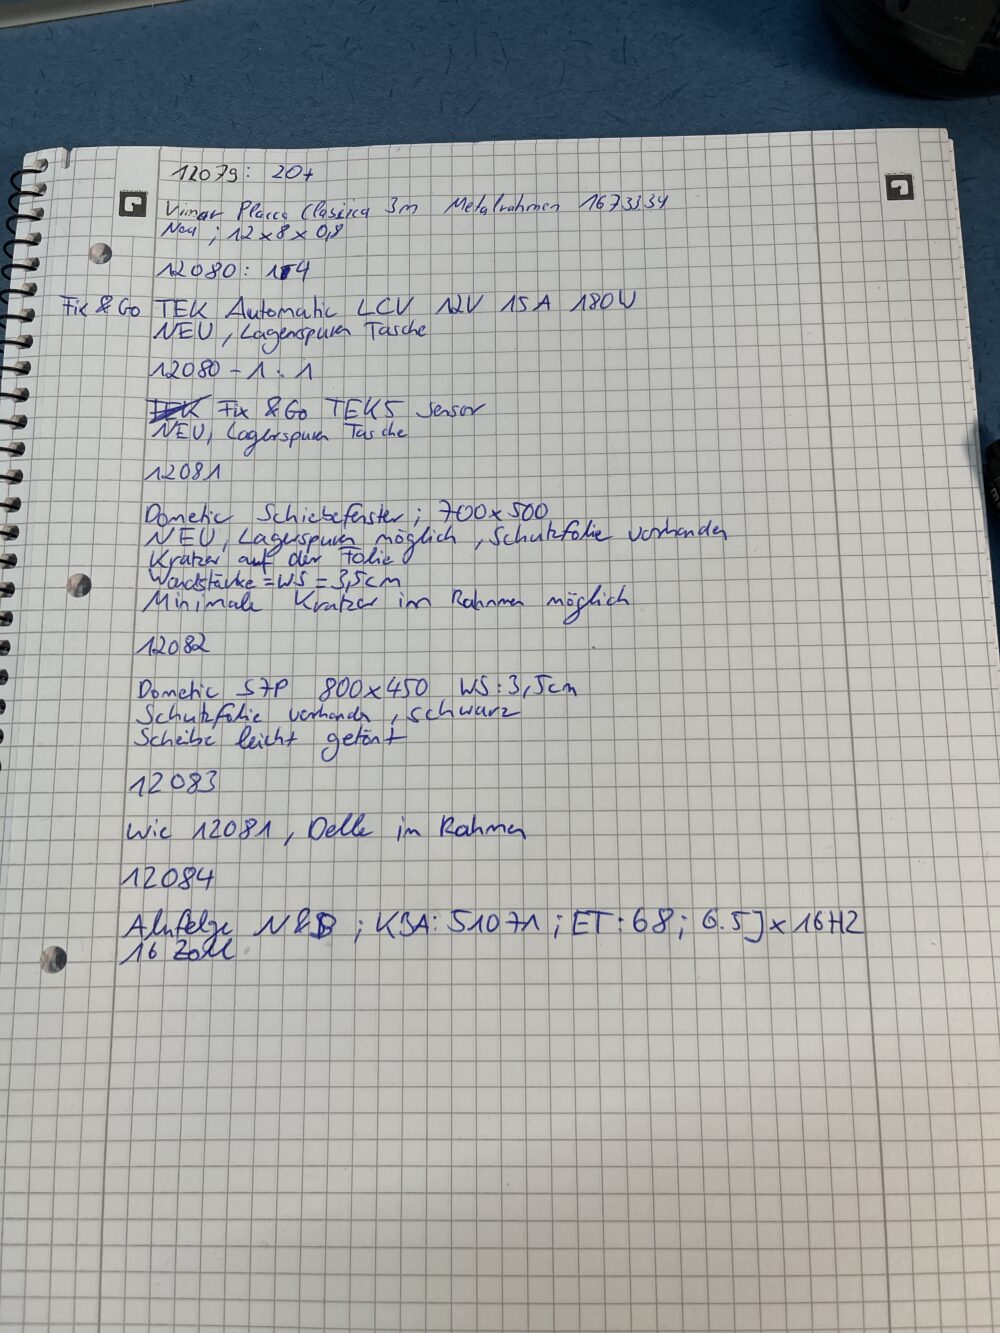 12079: 20+
Vimar Placca Classica 3m Metalrahmen
Neu ; 12x8x0,8
12080: 4
Fix & Go TEK Automatic LCV 12V 15A 180W
NEU, Lagerspuren Tasche
12080-1: 1
Fix & Go TEK5 Sensor
NEU, Lagerspuren Tasche
12081
Dometic Schiebefenster; 700x500
NEU, Lagerspuren möglich, Schutzfolie vorhanden
Kratzer auf der Folie
Wandstärke = WS = 3,5cm
Minimale Kratzer im Rahmen möglich
12082
Dometic S7P 800x450 WS: 3,5cm
Schutzfolie vorhanden, schwarz
Scheibe leicht getönt
12083
Wie 12081, Delle im Rahmen
12084
Alufelge ; KBA: 51071 ; ET: 68; 6.5Jx16H2
16 Zoll